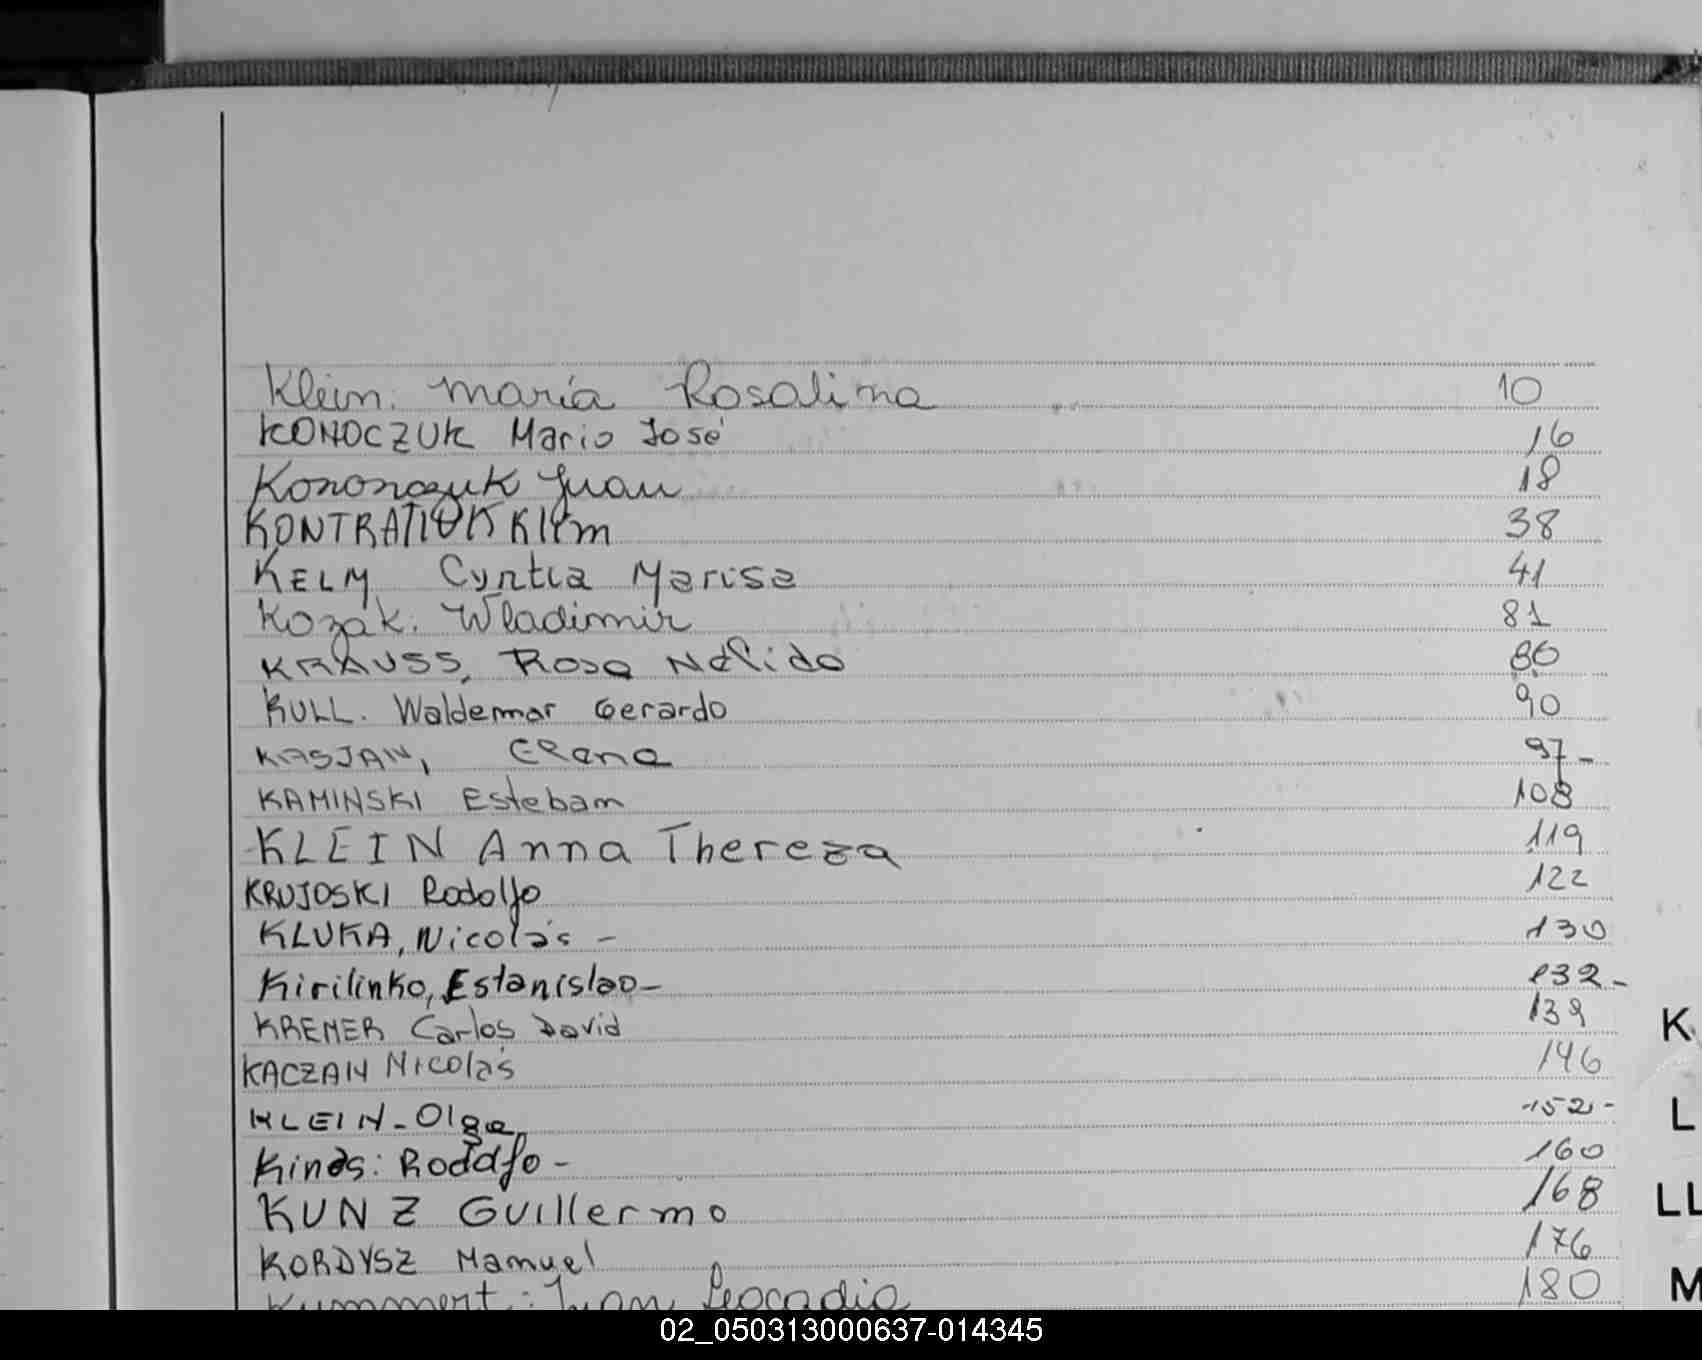 Klein. María Rosalina 10
KONOCZUK Mario José 16
Kononczuk Juan 18
KONTRATIUK Klim 38
KELM Cyntia Marisa 41
Kozak. Wladimir 81
KRAUSS, Rosa Nélida 86
KULL. Waldemar Gerardo 90
KASJAN, Elena 97-
KAMINSKI Esteban 108
KLEIN Anna Thereza 119
KRUJOSKI Rodolfo 122
KLUKA, Nicolás - 130
Kirilinko, Estanislao- 132-
KREMER Carlos David 139
K
KACZAN Nicolás 146
KLEIN-Olga 152-
L
Kinds: Rodolfo - 160
KUNZ Guillermo 168
LL
KORDYSZ Manuel 176
Kummert: Juan Leocadio 180
M
02_050313000637-014345